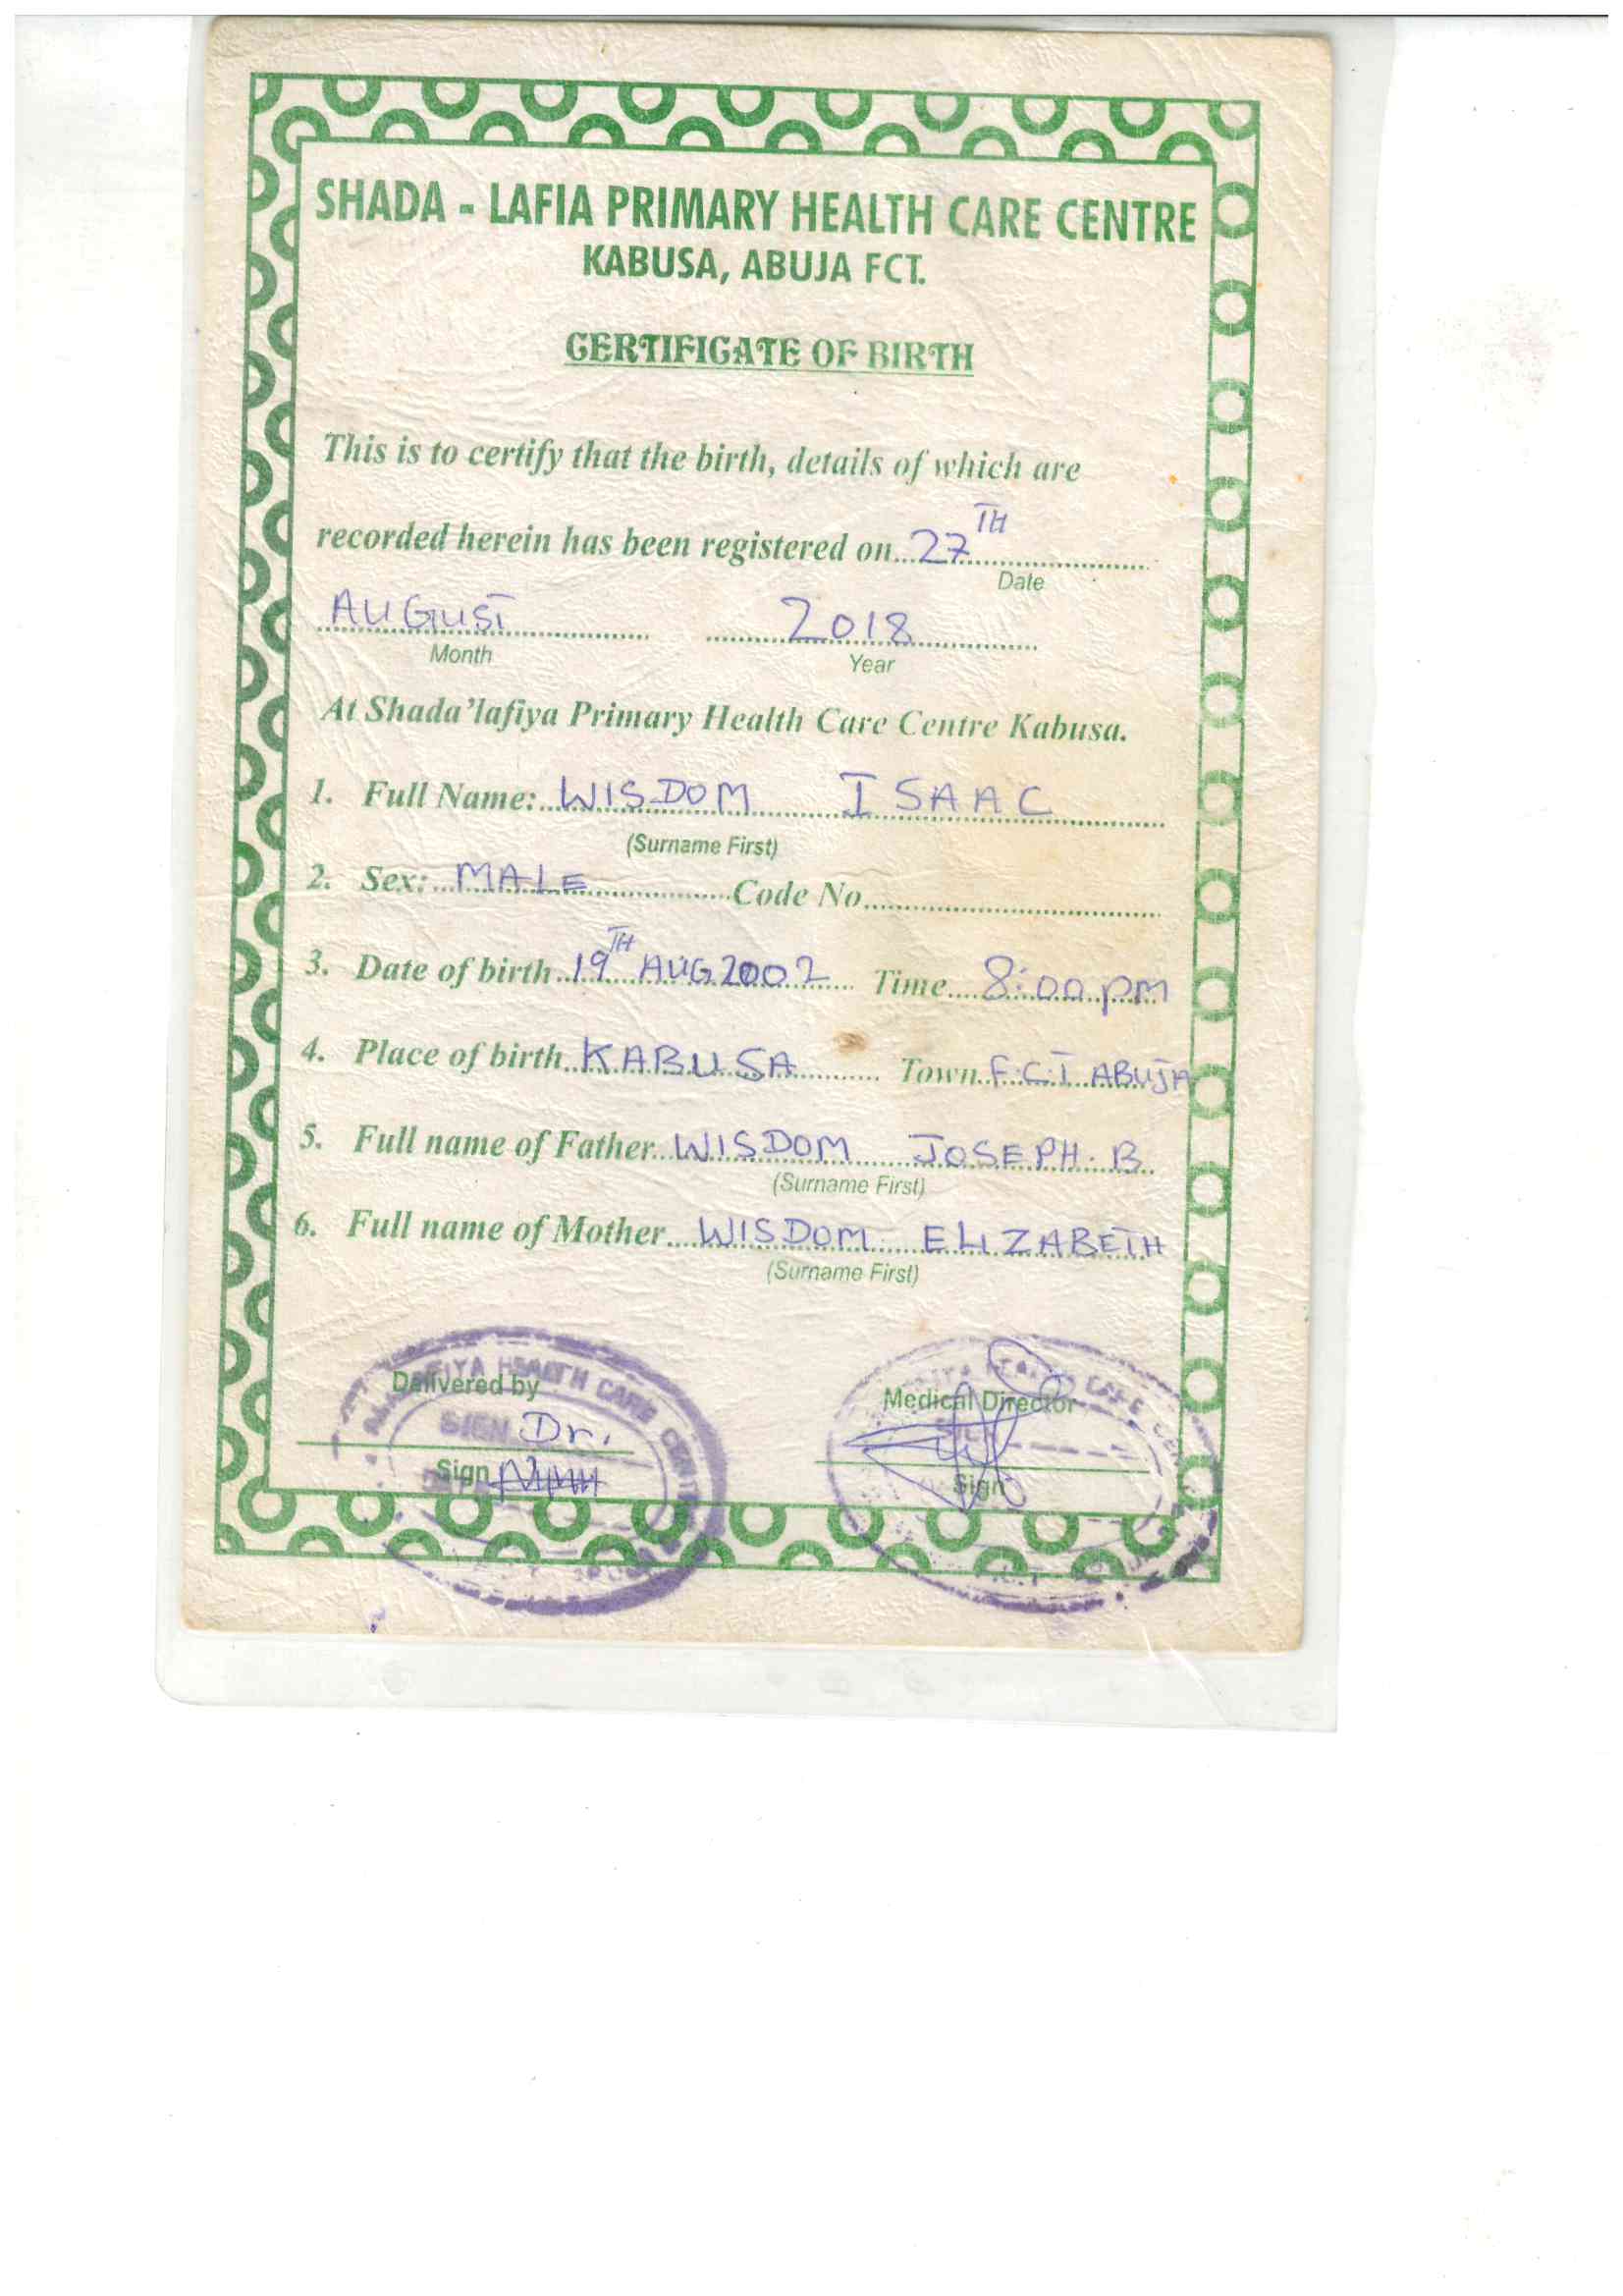 SHADA - LAFIA PRIMARY HEALTH CARE CENTRE
KABUSA, ABUJA FCT.
CERTIFICATE OF BIRTH
This is to certify that the birth, details of which are
recorded herein has been registered on 27TH
Date
AUGUST 2018
Month Year
At Shada'lafiya Primary Health Care Centre Kabusa.
1. Full Name: WISDOM ISAAC
(Surname First)
2. Sex: MALE Code No
3. Date of birth 19TH AUG 2002 Time 8:00 pm
4. Place of birth KABUSA Town F.C.T ABUJA
5. Full name of Father WISDOM JOSEPH. B
(Surname First)
6. Full name of Mother WISDOM ELIZABETH
(Surname First)
Delivered by Medical Director
HEALTH CARE
SIGN Dr.
Sign Sign